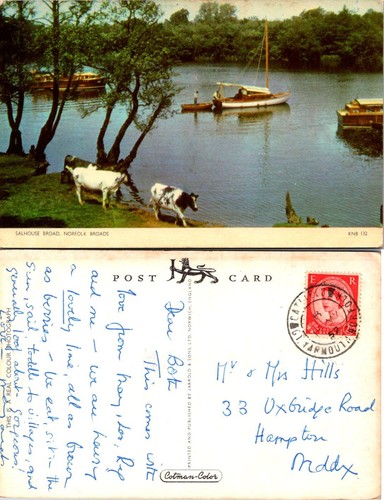 SALHOUSE BROAD, NORFOLK BROADS
KNB 132
POST CARD
THIS IS A REAL COLOUR PHOTOGRAPH
PRINTED AND PUBLISHED BY JARROLD & SONS LTD. NORWICH, ENGLAND
Cotman-Color
E R
YARMOUTH
Dear Both
This comes with
love from Mary, Les, Reg
and me - we are having
a lovely time, all as brown
as berries - We eat, sit in the
Sun, sail, toddle to villages, and
generally look about gorgeous
Mr & Mrs Hills
33 Uxbridge Road
Hampton
Mddx